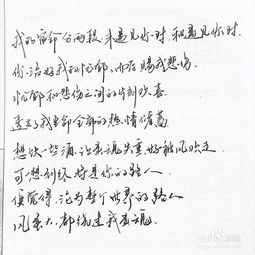 我的宿命分两段,未遇见你时,和遇见你时.
你治好我的忧郁,而后赐我悲伤.
忧郁和悲伤之间的片刻欢喜
透支了我生命全部的热情储蓄
想饮一些酒,让灵魂失重,好被风吹走.
可一想到终将是你的路人.
便觉得,沦为整个世界的路人.
风虽大,都绕过我灵魂.
Bai 经验